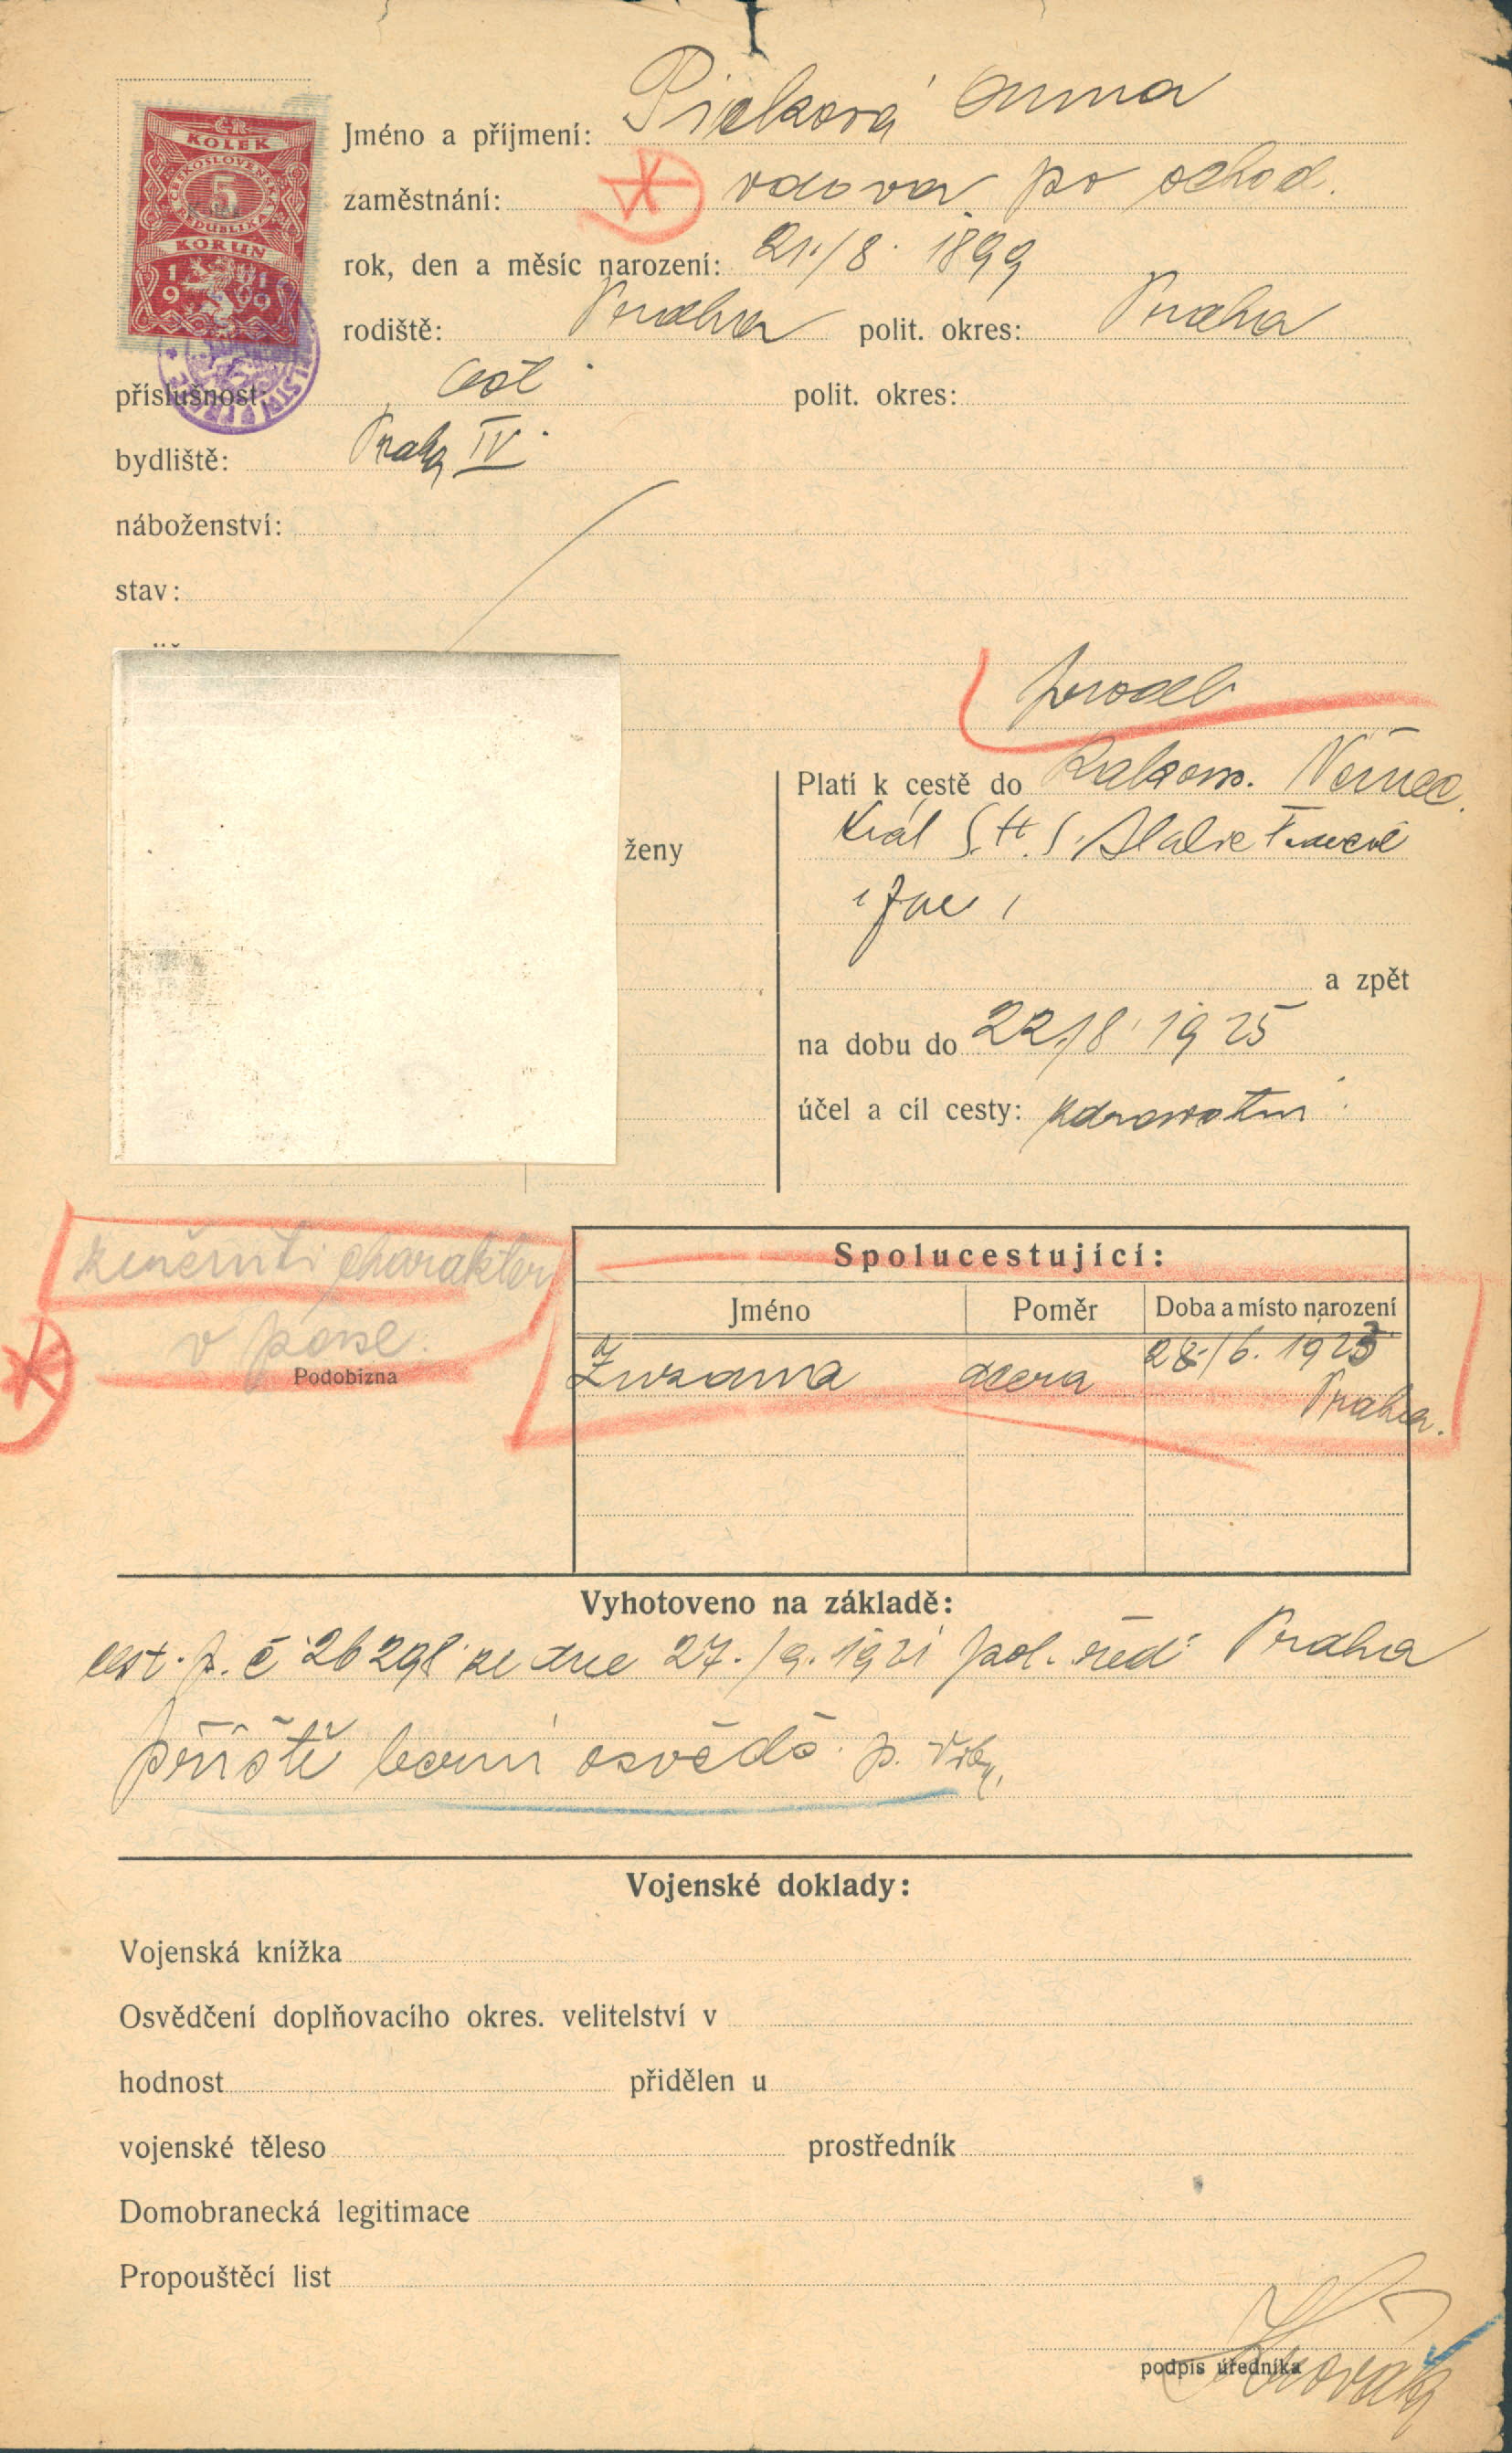 ČR
KOLEK
ČESKOSLOVENSKÁ
5
REPUBLIKA
KORUN
1919
Jméno a příjmení: Picková Anna
zaměstnání: vdova po obchod.
rok, den a měsíc narození: 21./8. 1899
rodiště: Praha polit. okres: Praha
příslušnost: čsl. polit. okres:
bydliště: Praha IV.
náboženství:
stav:
prodl.
Platí k cestě do Rakous. Němec.
Král. S.H.S. Italie Francie
ženy
a zpět
na dobu do 22./8. 1925
účel a cíl cesty: zdravotní
změniti charakter
v pase.
Podobizna
Spolucestující:
Jméno Poměr Doba a místo narození
Zuzana dcera 28./6. 1923
Praha.
Vyhotoveno na základě:
cest. p. č. 26298 ze dne 27./9. 1921 pol. řed. Praha
příště berní osvědč. p.
Vojenské doklady:
Vojenská knížka
Osvědčení doplňovacího okres. velitelství v
hodnost přidělen u
vojenské těleso prostředník
Domobranecká legitimace
Propouštěcí list
podpis úředníka